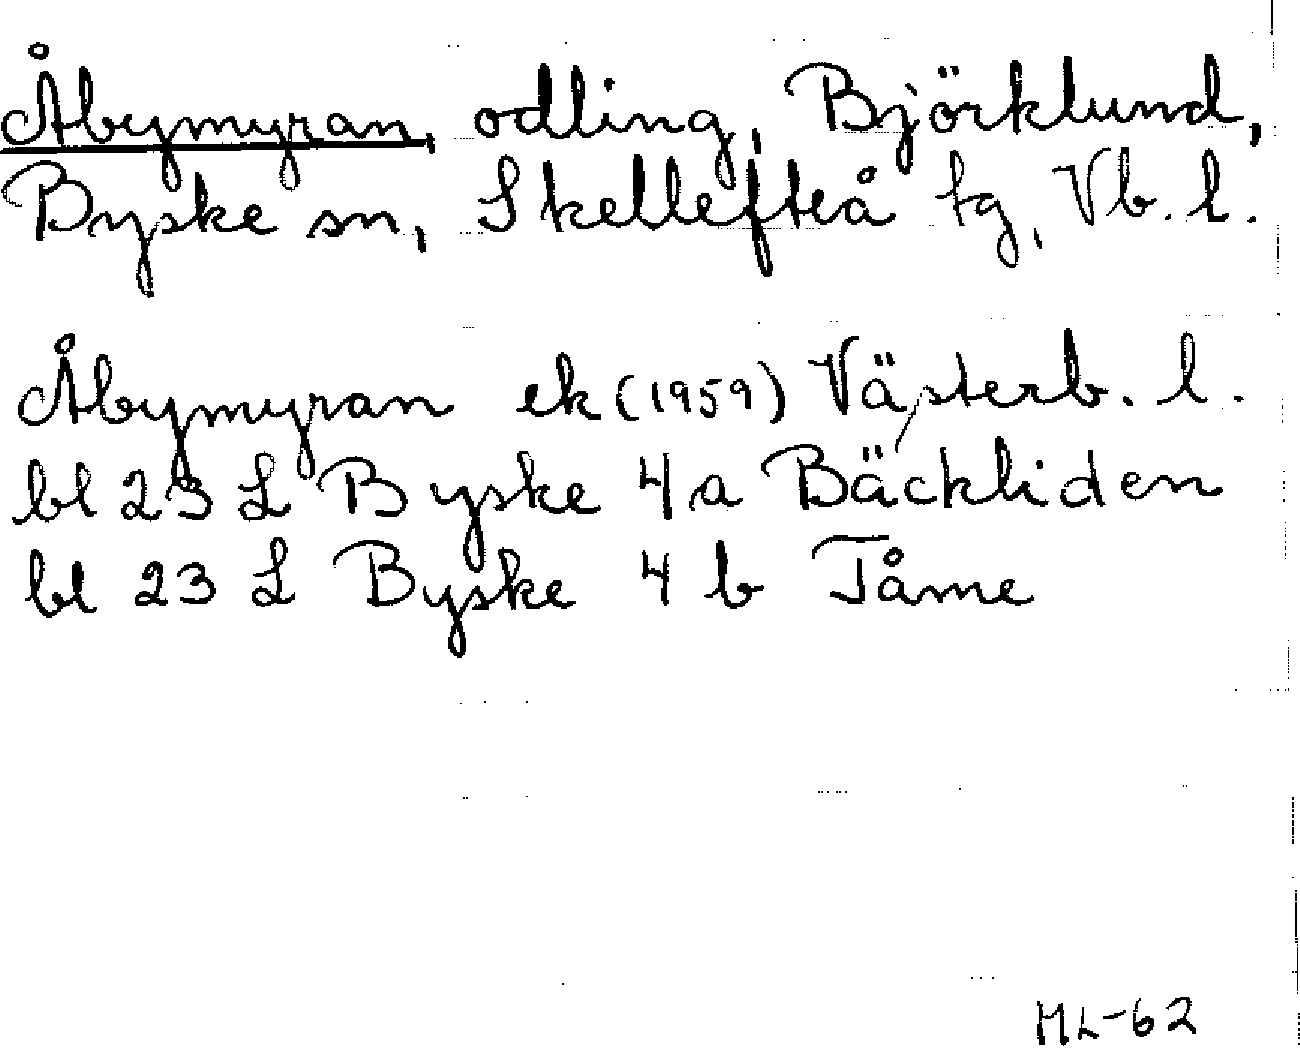 Åbymyran, odling, Björklund,
Byske sn, Skellefteå tg, Vb. l.
Åbymyran ek (1959) Västerb. l.
bl 23 L Byske 4a Bäckliden
bl 23 L Byske 4 b Tåme
ML-62